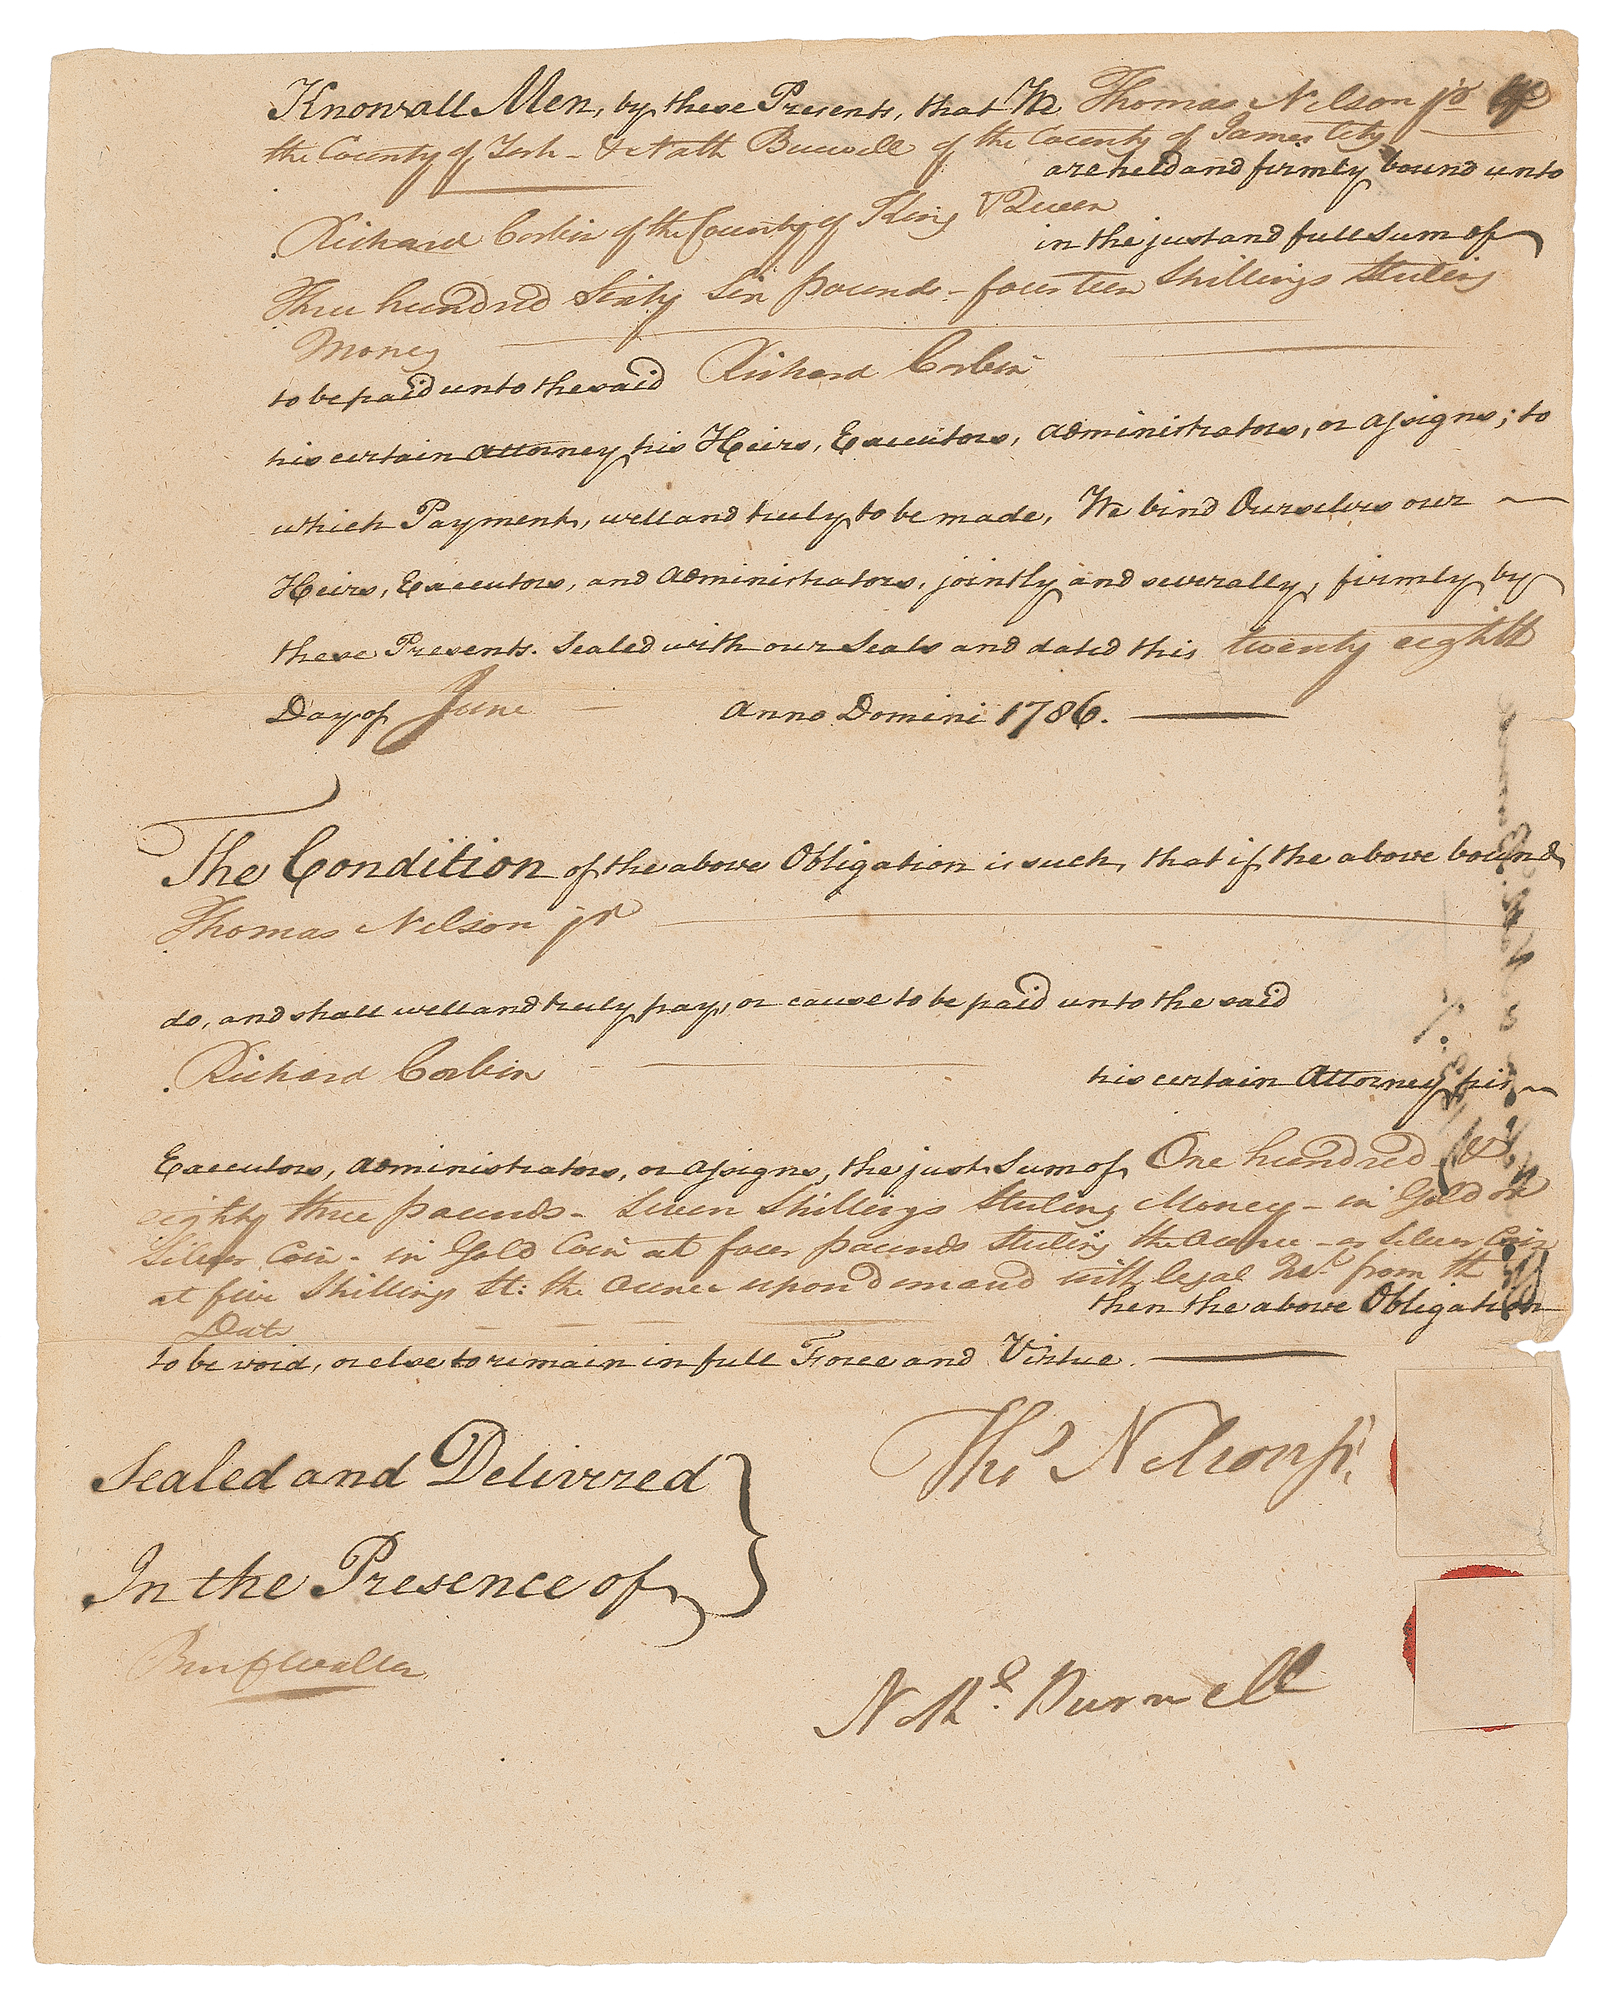 Know all Men, by these Presents, that We Thomas Nelson jr of
the County of York - & Nath Burwell of the County of James City
are held and firmly bound unto
Richard Corbin of the County of King & Queen
in the just and full Sum of
Three hundred Sixty Six pounds - fourteen Shillings Sterling
Money
to be paid unto the said Richard Corbin
his certain Attorney, his Heirs, Executors, Administrators, or assigns; to
which Payment, well and truly to be made, We bind Ourselves our
Heirs, Executors, and Administrators, jointly and severally, firmly by
these Presents. Sealed with our Seals and dated this twenty eighth
Day of June Anno Domini 1786.
The Condition of the above Obligation is such, that if the above bound
Thomas Nelson jr
do, and shall well and truly pay, or cause to be paid unto the said
Richard Corbin
his certain Attorney, his
Executors, Administrators, or assigns, the just Sum of One hundred &
eighty three pounds - Seven Shillings Sterling Money - in Gold or
Silver Coin - in Gold Coin at four pounds Sterling the Ounce - or Silver Coin
at five Shillings St: the Ounce upon demand with legal Int. from the
Date
then the above Obligation
to be void, or else to remain in full Force and Virtue.
Sealed and Delivered
In the Presence of
Thos Nelson jr.
Nathl. Burwell